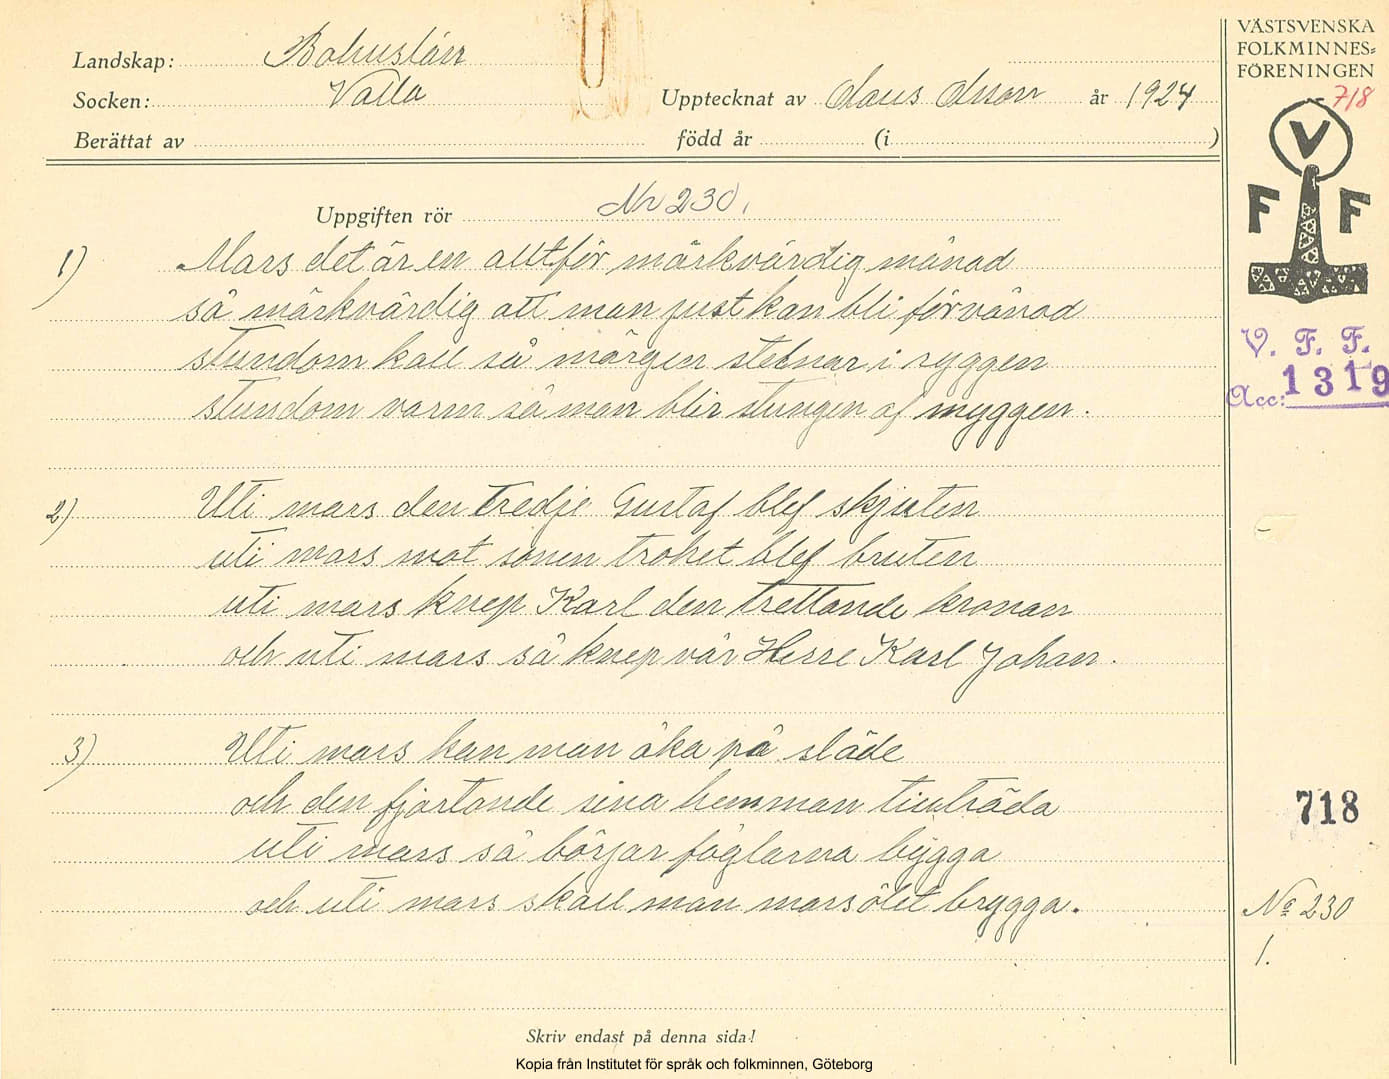 Landskap: Bohuslän
Socken: Valla
Upptecknat av Claus Olsson år 1924
Berättat av
född år (i )
VÄSTSVENSKA
FOLKMINNES=
FÖRENINGEN
718
V
F F
V. F. F.
Acc: 1319
Uppgiften rör Nr 230.
1) Mars det är en alltför märkvärdig månad
så märkvärdig att man just kan bli förvånad
stundom kall så märgen stelnar i ryggen
stundom varm så man blir stungen af myggen.
2) Uti mars den tredje Gustaf blef skjuten
uti mars mot sonen trohet blef bruten
uti mars knep Karl den trettonde kronan
och uti mars så knep vår Herre Karl Johan.
3) Uti mars kan man åka på släde
och den fjortonde sina hemman
uti mars så börjar foglarna bygga
och uti mars skall man marsölet brygga.
718
No 230
1.
Skriv endast på denna sida!
Kopia från Institutet för språk och folkminnen, Göteborg